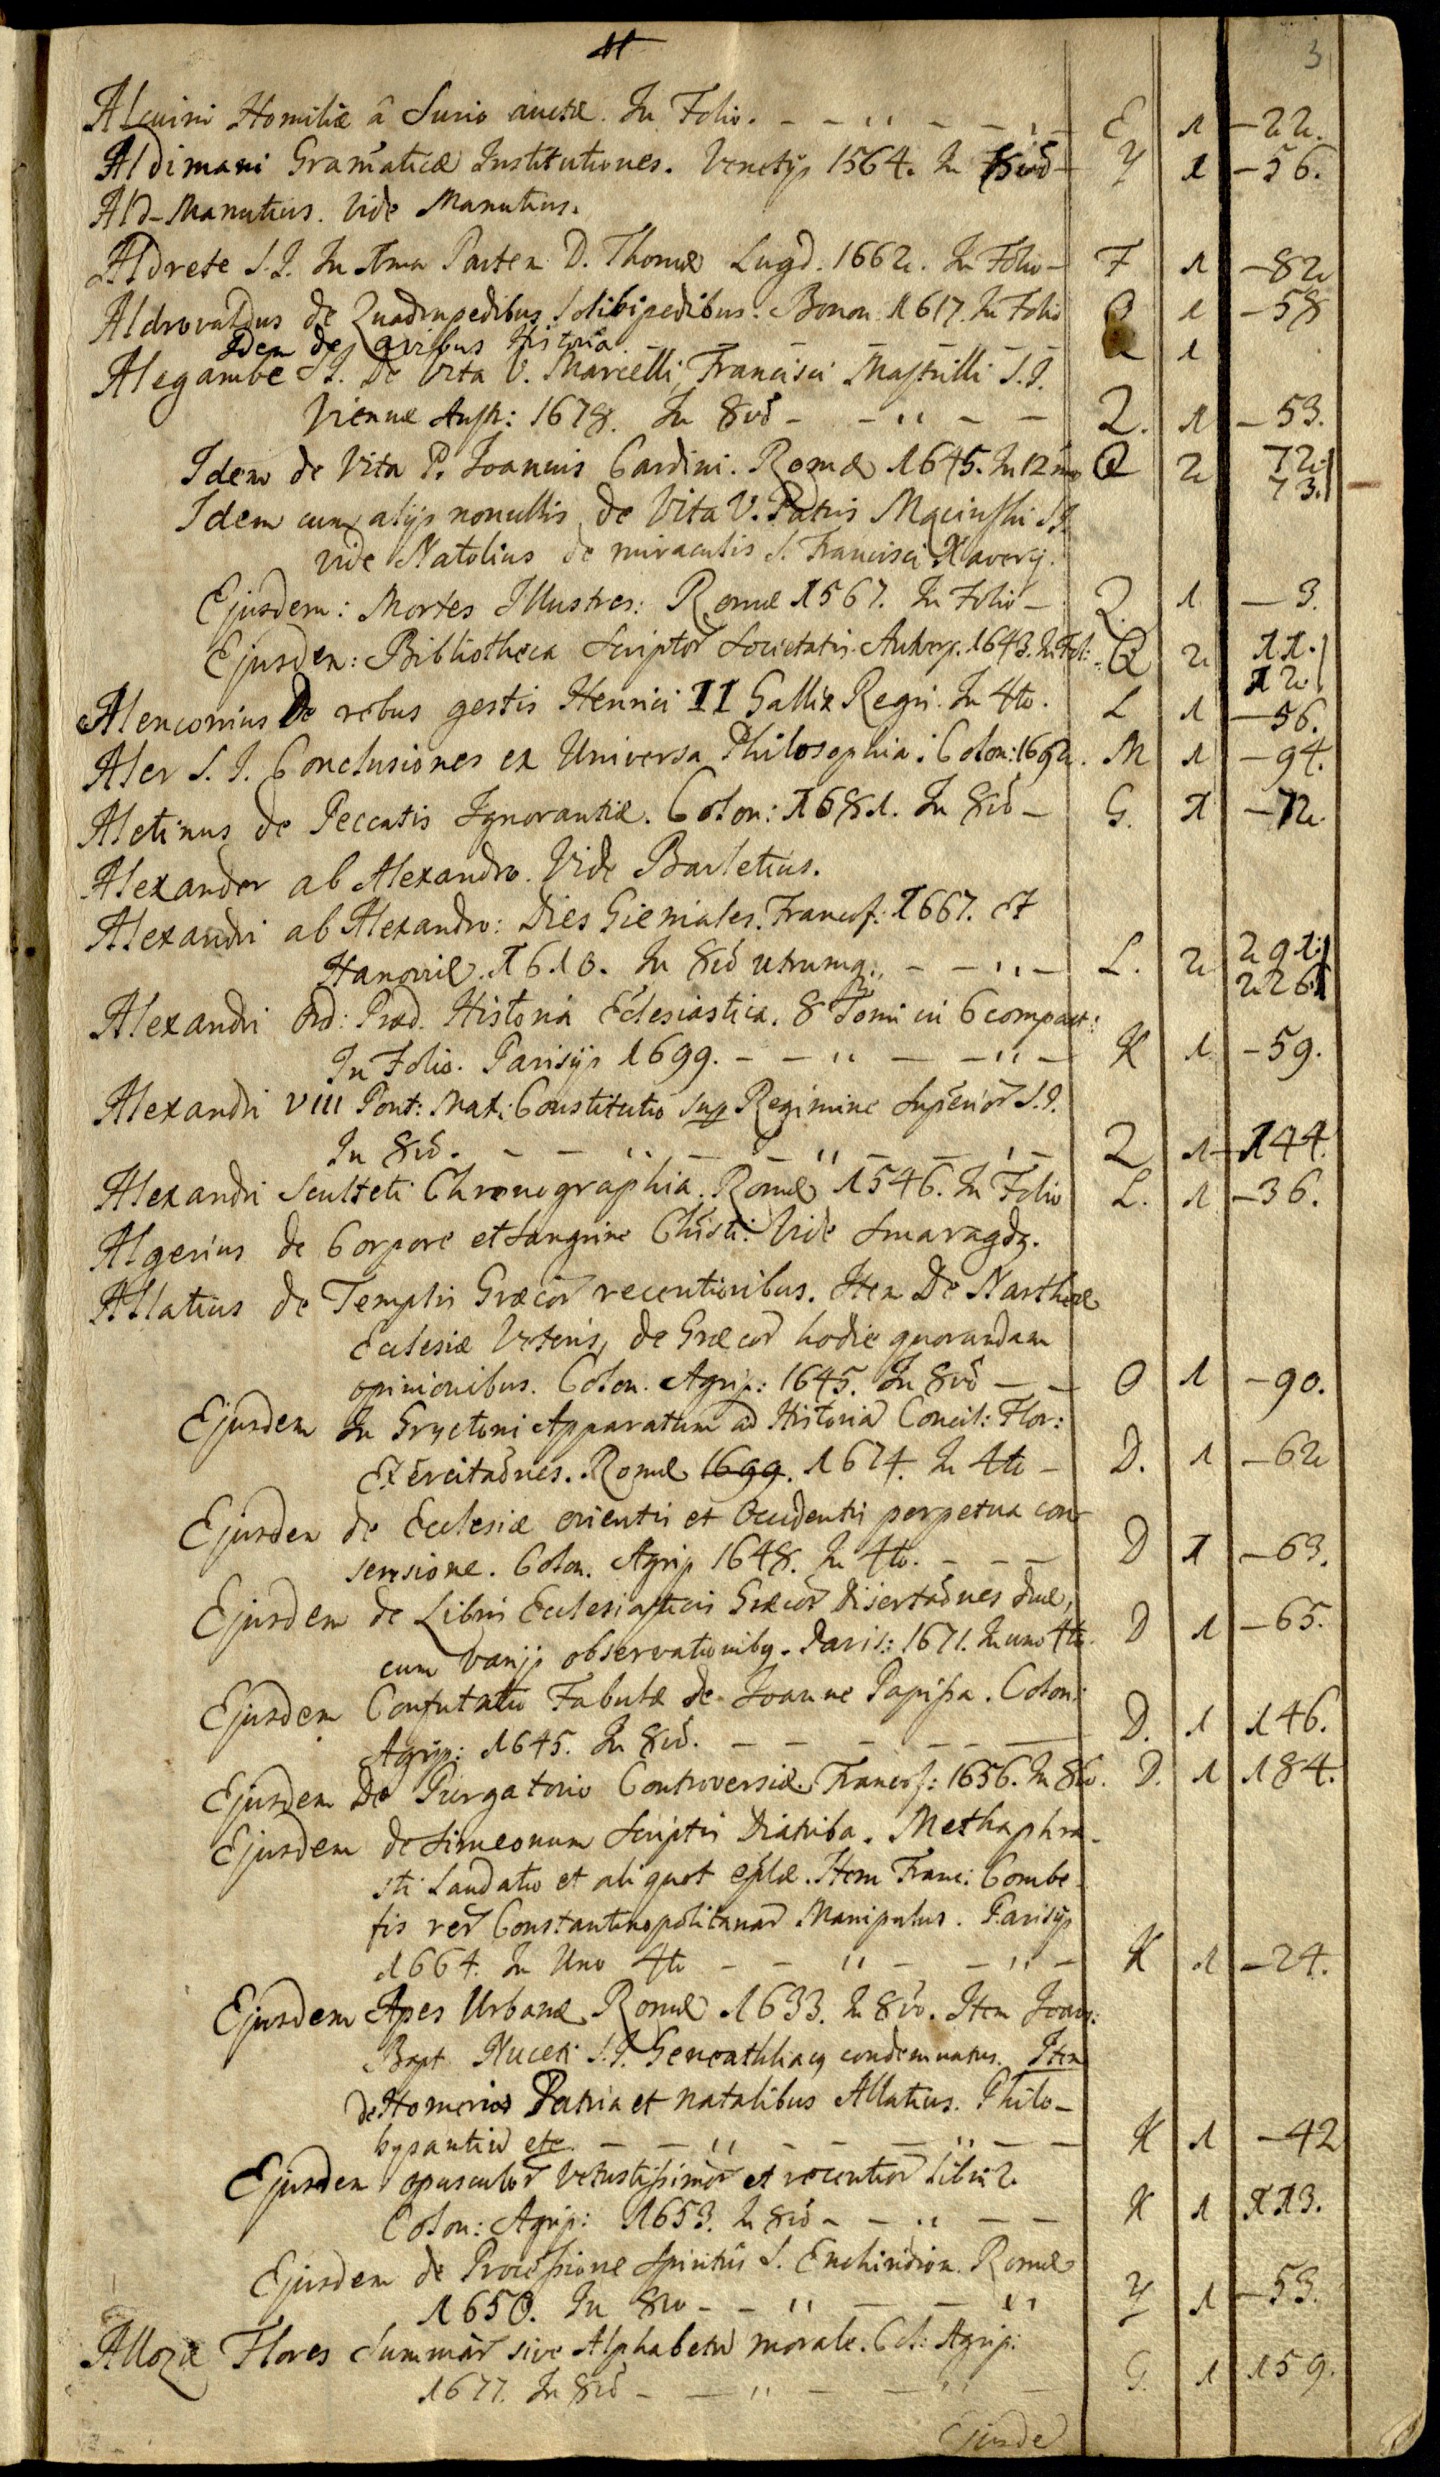 Al
3
Alcuini Homiliæ â Surio auctæ. In Folio. E 1 –22.
Aldimani Gramaticæ Institutiones. Venetijs 1564. In 8vô Y 1 –56.
Ald-Manutius. Vide Manutius.
Aldrete S.J. In Imam Partem D. Thomæ Lugd. 1662. In Folio – F 1 –82
Aldrovaldus de Quadrupedibus Solidipedibus. Bonon 1617. In Folio 1 –58
Idem de avibus Historia. 1
Alegambe S.J. De Vita V. Marcelli Francisci Mastrilli S.J.
Viennæ Austr: 1678. In 8vô – Q. 1 –53.
Idem de Vita P. Joannis Cardini. Romæ 1645. In 12mo Q 2 72. 73.
Idem cum alijs nonullis de Vita V. Patris Macinski S.J.
vide Natolius de miraculis S. Francisci Xaverij.
Ejusdem: Mortes Illustres: Romæ 1567. In Folio – Q. 1 –3.
Ejusdem: Bibliotheca Scriptor Societatis. Antverp. 1643. In Fol: Q 2 11. 12.
Alenconius De rebus gestis Henrici II Galliæ Regis. In 4to. L 1 –56.
Aler S.J. Conclusiones ex Universa Philosophia. Colon: 1692. M 1 –94.
Aletinus de Peccatis Ignorantiæ. Colon: 1681. In 8vô – G. 1 –12.
Alexander ab Alexandro. Vide Barletius.
Alexandri ab Alexandro: Dies Gieniales. Francof: 1667. et
Hanoviæ. 1610. In 8vô utrumq. L. 2 291. 226.
Alexandri Ord: Præd. Historia Eclesiastica. 8 Tomi in 6 compact:
In Folio. Parisijs 1699. – K 1 –59.
Alexandri VIII Pont: Max: Constitutio sup Regimine Superior S.J.
In 8vô. Q 1 –144.
Alexandri Sculteti Chronographia. Romæ 1546. In Folio L. 1 –36.
Algerius de Corpore et Sanguine Christi: Vide Smaragdq.
Allatius de Templis Græcor recentioribus. Item De Narthece
Ecclesiæ Veteris, de Græcor hodie quorundam
opinionibus. Colon. Agrip: 1645. In 8vô – O 1 –90.
Ejusdem In Gryctoni Apparatum ad Historia Concil: Flor:
Exercitaônes. Romæ 1699. 1674. In 4to – D. 1 –62
Ejusdem de Ecclesiæ orientis et Occidentis perpetua con-
sensione. Colon. Agrip 1648. In 4to. – D 1 –63.
Ejusdem de Libris Ecclesiasticis Græcor Disertaônes duæ,
cum varijs observationibq. Paris: 1671. In uno 4to. D 1 –65.
Ejusdem Confutatio Fabulæ de Joanne Papissa. Colon:
Agrip: 1645. In 8vô. D. 1 146.
Ejusdem De Purgatorio Controversiæ. Francof: 1656. In 8vo. D. 1 184.
Ejusdem de Simeonum Scriptis Diatriba. Methaphra-
sti Laudatio et aliquot eplæ. Item Franc: Combe-
fis rer Constantinopolitanar Manipulus. Parisijs
1664. In Uno 4to – K 1 –24.
Ejusdem Apes Urbanæ Romæ 1633. In 8vo. Item Joan:
Bapt Nuceti S.J. Geneathliacq condemnatus. Item
de Homerios Patria et natalibus Allatius. Philo-
bysantiu etc. – K 1 –42
Ejusdem opusculor Vetustissimor et recentior Libri 2
Colon: Agrip: 1653. In 8vô – K 1 113.
Ejusdem de Processione Spiritûs S. Enchiridion. Romæ
1650. In 8vo – Y 1 –53.
Allozæ Flores Summar sive Alphabetu morale. Col: Agrip:
1677. In 8vô – G. 1 159.
Ejusde